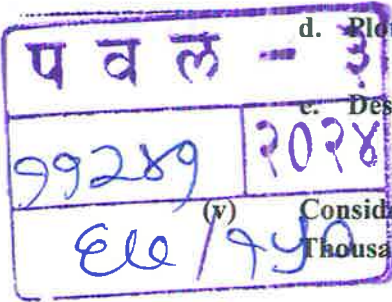 d. Plo
प व ल - ३
e. Des
११२४१ २०२४
(v) Consid
६७ / १५०
Thousa